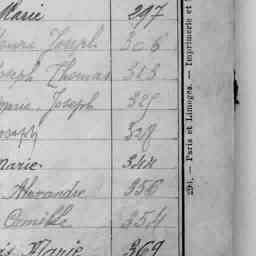 Marie 297
Joseph 306
Joseph Thomas 313
Joseph 325
Joseph 328
Marie 344
Alexandre 356
Camille 354
Marie 369
294. — Paris et Limoges. — Imprimerie et